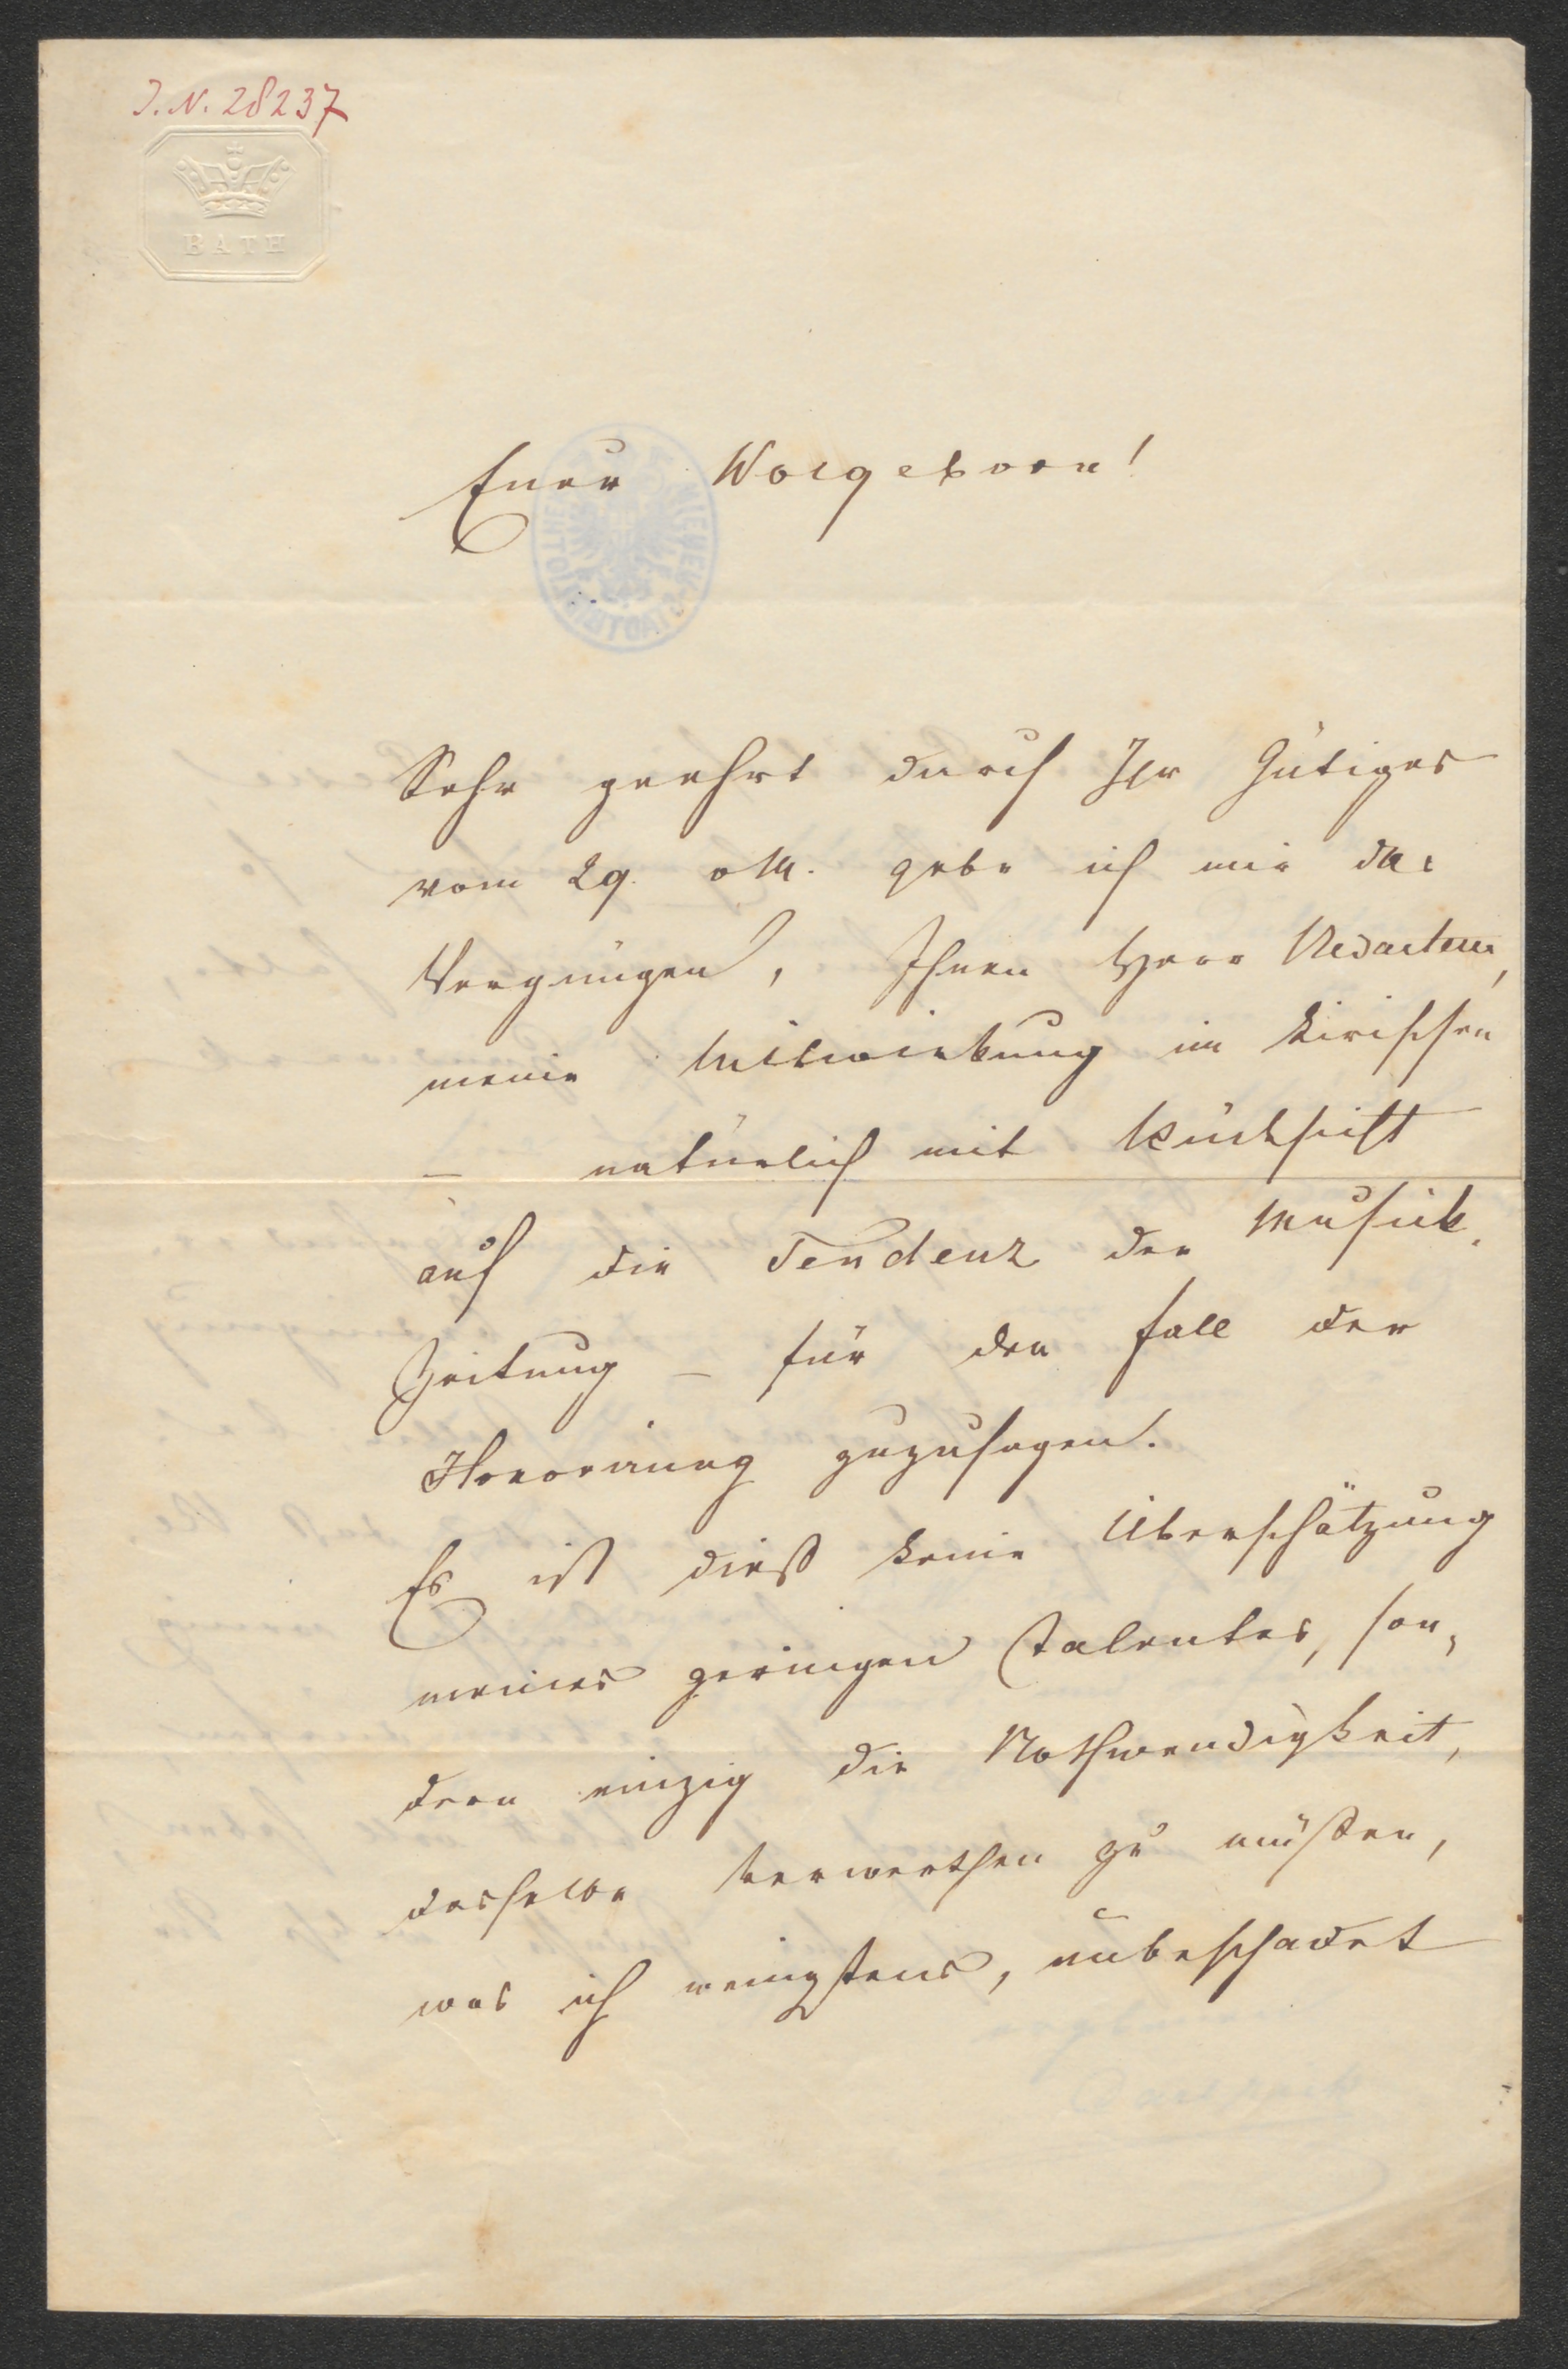 J. N. 28237
BATH
Euer Wolgeborn!
WIENER STADTBIBLIOTHEK
Sehr geehrt durch Ihr Gütiges
vom 29. v M. gebe ich mir das
Vergnügen, Ihnen Herr Redacteur,
meine Mitwirkung im Lirischen
– natürlich mit Rücksicht
auf die Tendenz der Musik-
Zeitung – für den Fall der
Honorirung zuzusagen.
Es ist dieß keine Überschätzung
meines geringen Talentes, son-
dern einzig die Nothwendigkeit,
dasselbe verwerthen zu müßen,
was ich wenigstens, unbeschadet